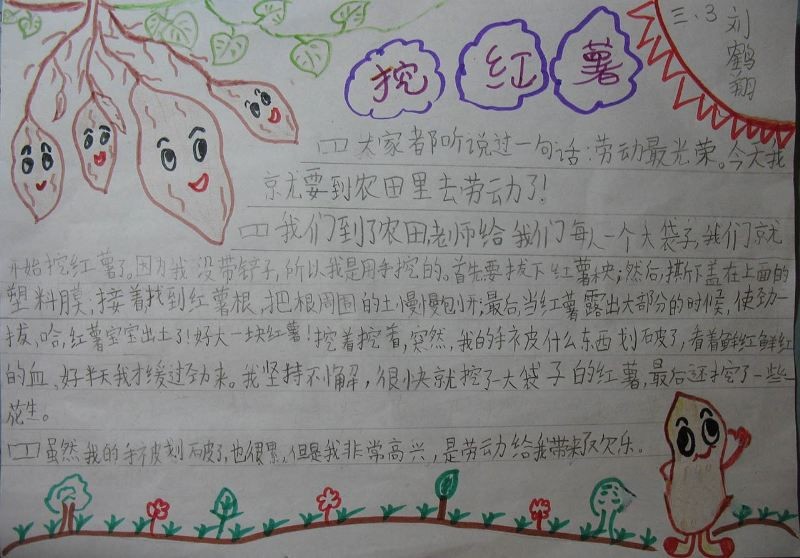 三.3 刘鹤翔
挖红薯
大家都听说过一句话:劳动最光荣。今天我
就要到农田里去劳动了!
我们到了农田,老师给我们每人一个大袋子,我们就
开始挖红薯了。因为我没带铲子,所以我是用手挖的。首先要拔下红薯秧;然后,撕下盖在上面的
塑料膜,接着找到红薯根,把根周围的土慢慢刨开;最后,当红薯露出大部分的时候,使劲一
拔,哈,红薯宝宝出土了!好大一块红薯!挖着挖着,突然,我的手被什么东西划破了,看着鲜红鲜红
的血,好半天我才缓过劲来。我坚持不懈,很快就挖了一大袋子的红薯,最后还挖了一些
花生。
虽然我的手被划破了,也很累,但是我非常高兴,是劳动给我带来了欢乐。